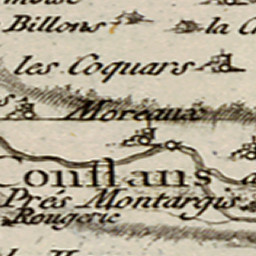 Billons
la
les Coquars
Moreaux
Conflans
Prés Montargis
Rougerie